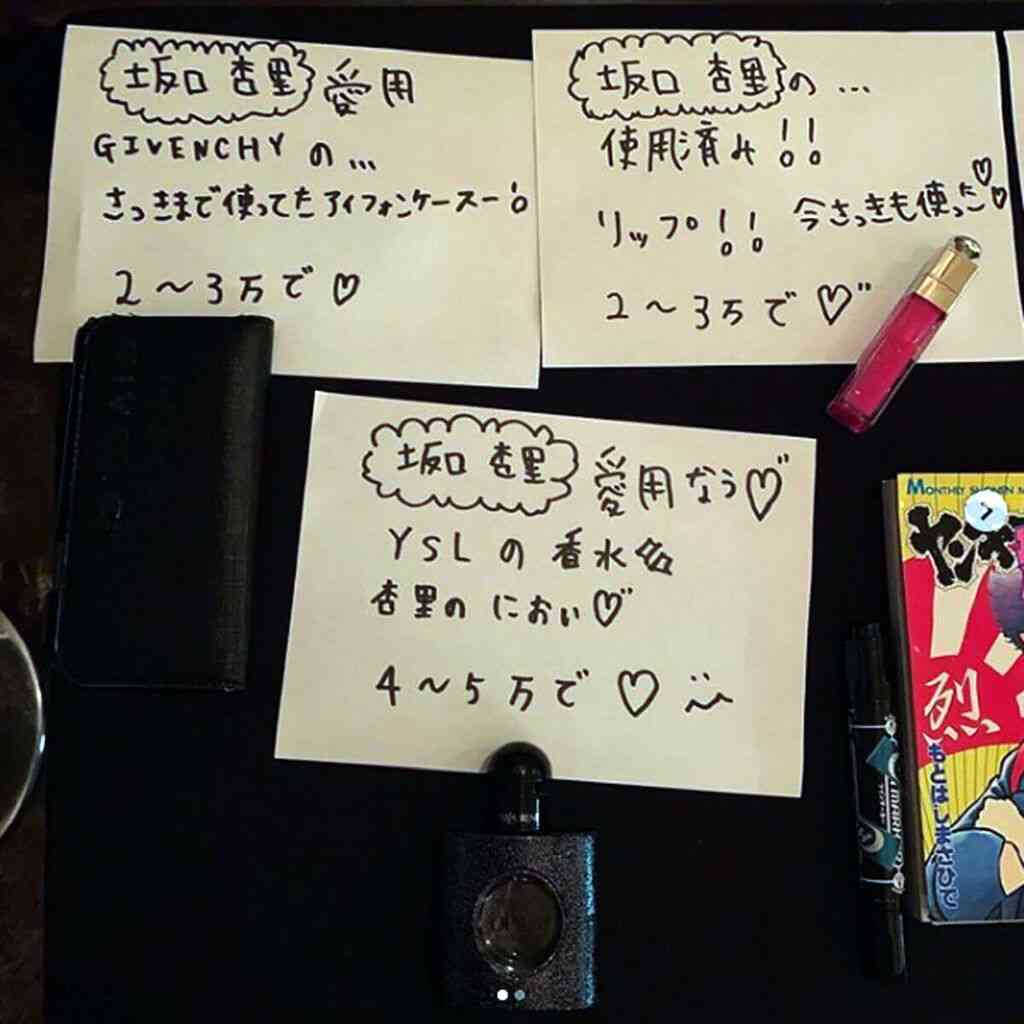 坂口 杏里 愛用
GIVENCHY の...
さっきまで使ってたアイフォンケースー!
2〜3万で♡
坂口 杏里の...
使用済み!!
リップ!! 今さっきも使った♡♡
2〜3万で♡"
坂口 杏里 愛用なう♡"
YSLの香水名
杏里の におい♡"
4〜5万で♡
MONTHLY SHONEN M
烈